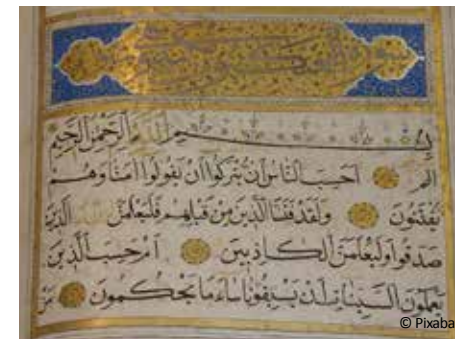 بِسْمِ اللَّهِ الرَّحْمٰنِ الرَّحِيمِ
الم اَحَسِبَ النَّاسُ اَنْ يُتْرَكُوا اَنْ يَقُولُوا اٰمَنَّا وَهُمْ
يُفْتَنُونَ وَلَقَدْ فَتَنَّا الَّذِينَ مِنْ قَبْلِهِمْ فَلَيَعْلَمَنَّ اللَّهُ الَّذِينَ
صَدَقُوا وَلَيَعْلَمَنَّ الْكَاذِبِينَ اَمْ حَسِبَ الَّذِينَ
يَعْمَلُونَ السَّيِّئَاتِ اَنْ يَسْبِقُونَا سَاءَ مَا يَحْكُمُونَ مَنْ
© Pixaba